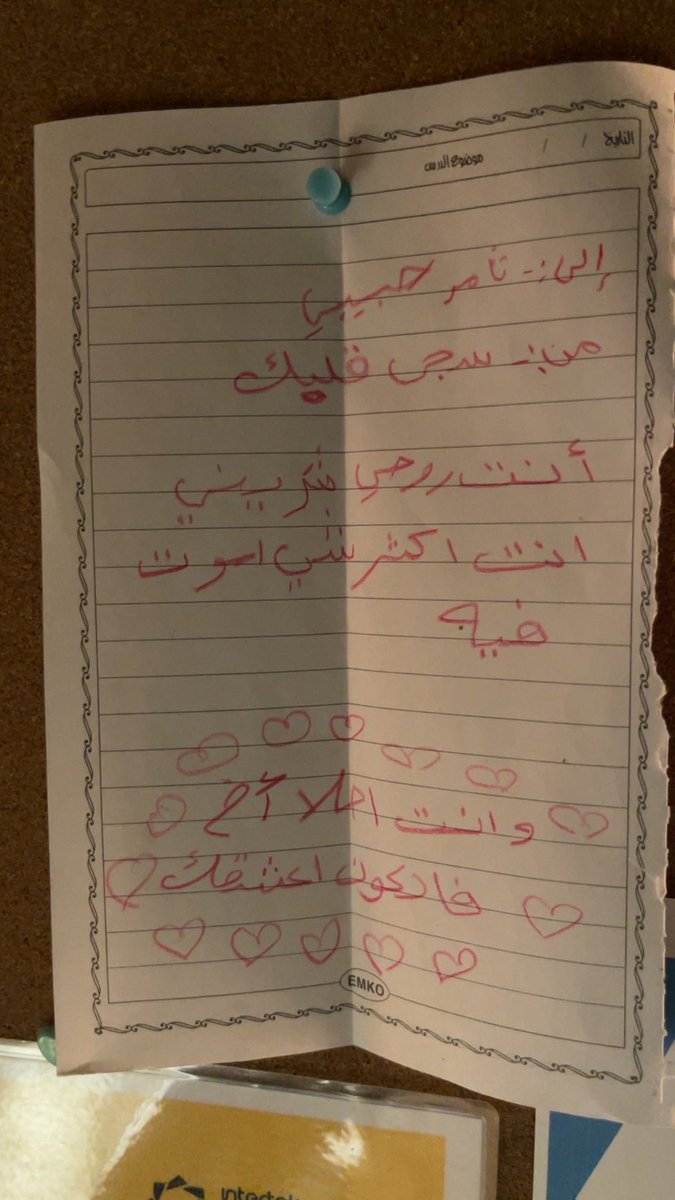 التاريخ / /
موضوع الدرس
إلى :- تامر حبيبي
من :- سجى قلبك
أنت روحي
انت اكثر شي اموت
فيه
وانت احلا آخ
اعشقك
EMKO